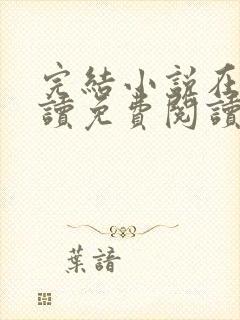 完結小說在
讀免費閱讀
葉諳